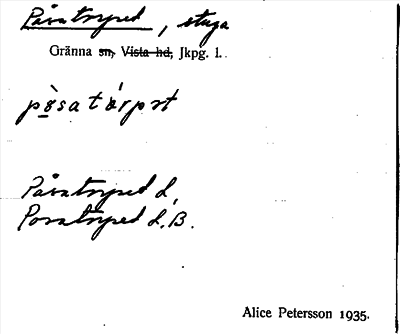 Påsatorpet, stuga
Gränna sn, Vista hd, Jkpg. l.
pòsatárpət
Påsatorpet d,
Posatorpet d. B.
Alice Petersson 1935.